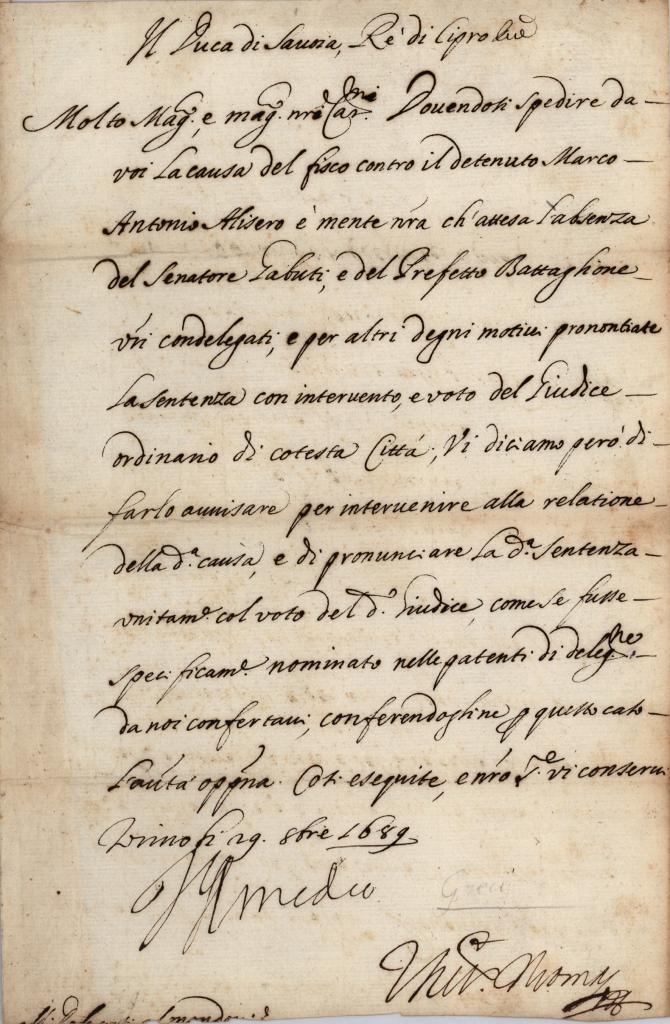 Il Duca di Savoia, Rè di Cipro &c
Molto Mag.ci, e mag.ci nri Car.mi Dovendosi spedire da-
voi La causa del fisco contro il detenuto Marco-
Antonio Alisero è mente nr̃a ch'attesa l'absenza
del Senatore Gabuti, e del Prefetto Battaglione-
vr̃i condelegati, e per altri degni motivi prononti​ate
La sentenza con intervento, e voto del Giudice-
ordinario di cotesta Città, Vi diciamo però di-
farlo avvisare per intervenire alla relatione-
della d.a causa, e di pronunciare La d.a Sentenza-
unitam.e col voto del d.o Giudice, come se fusse-
specificam.e nominato nelle patenti di deleg.ne-
da noi confertavi, conferendogline p questo cato-
L'aut.a opp.na. Cosi eseguite, e nr̃o S.re vi conservi
li 29. 8bre 1689
V Amedeo
Greci